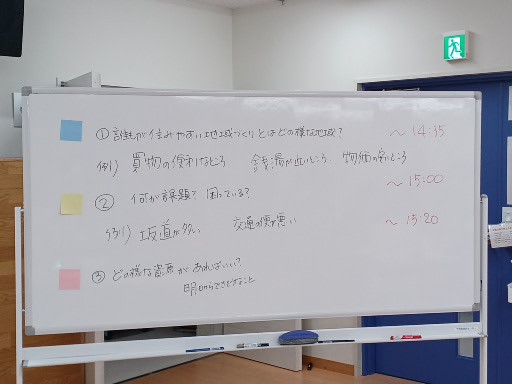 ① 誰もが住みやすい地域づくりとはどの様な地域？ ～14:35
例) 買物の便利なところ 銭湯が近いところ 物価の安いところ
～15:00
② 何が課題？困っている？
例) 坂道が多い 交通の便が悪い ～15:20
③ どの様な資源があればいい？
明日からできそうなこと